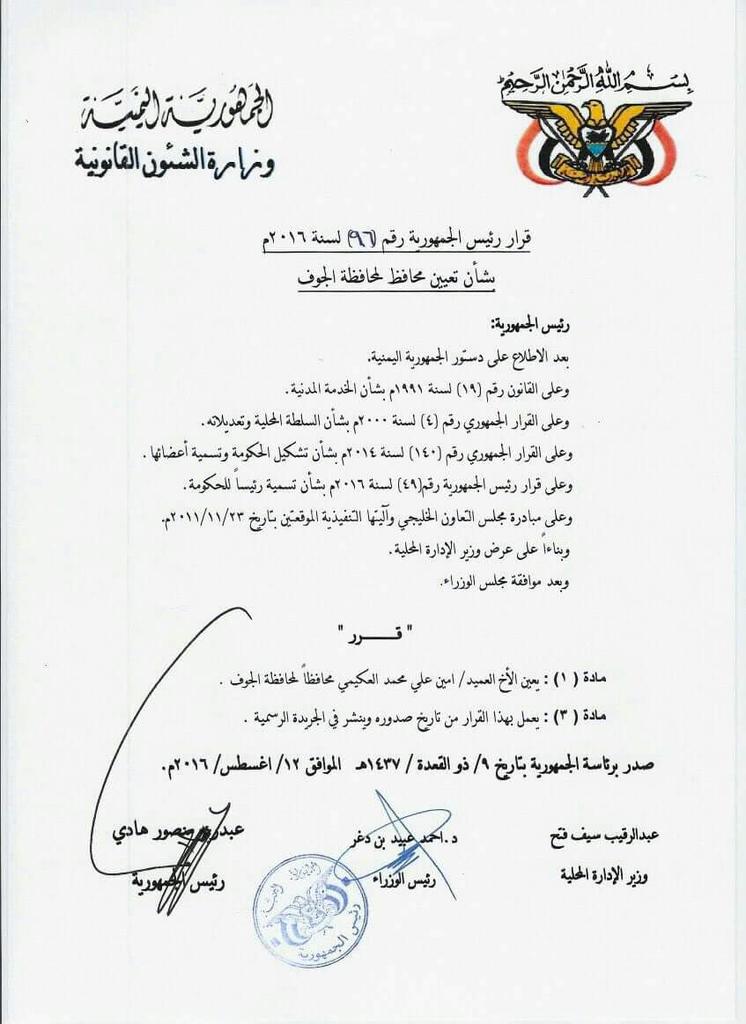 بسم الله الرحمن الرحيم
الجمهورية اليمنية
وزارة الشئون القانونية
قرار رئيس الجمهورية رقم (٩٦) لسنة ٢٠١٦م
بشأن تعيين محافظ لمحافظة الجوف
رئيس الجمهورية:
بعد الاطلاع على دستور الجمهورية اليمنية.
وعلى القانون رقم (١٩) لسنة ١٩٩١م بشأن الخدمة المدنية.
وعلى القرار الجمهوري رقم (٤) لسنة ٢٠٠٠م بشأن السلطة المحلية وتعديلاته.
وعلى القرار الجمهوري رقم (١٤٠) لسنة ٢٠١٤م بشأن تشكيل الحكومة وتسمية أعضائها.
وعلى قرار رئيس الجمهورية رقم(٤٩) لسنة ٢٠١٦م بشأن تسمية رئيساً للحكومة.
وعلى مبادرة مجلس التعاون الخليجي وآليتها التنفيذية الموقعتين بتاريخ ٢٠١١/١١/٢٣م.
وبناءاً على عرض وزير الإدارة المحلية.
وبعد موافقة مجلس الوزراء.
" قـــــرر "
مادة ( ١ ) : يعين الأخ العميد/ امين علي محمد العكيمي محافظاً لمحافظة الجوف .
مادة ( ٣ ) : يعمل بهذا القرار من تاريخ صدوره وينشر في الجريدة الرسمية .
صدر برئاسة الجمهورية بتاريخ ٩/ ذو القعدة / ١٤٣٧هـ الموافق ١٢/ اغسطس/ ٢٠١٦م.
عبدالرقيب سيف فتح
وزير الإدارة المحلية
د.احمد عبيد بن دغر
رئيس الوزراء
عبدربه منصور هادي
رئيس الجمهورية
رئيس الجمهورية